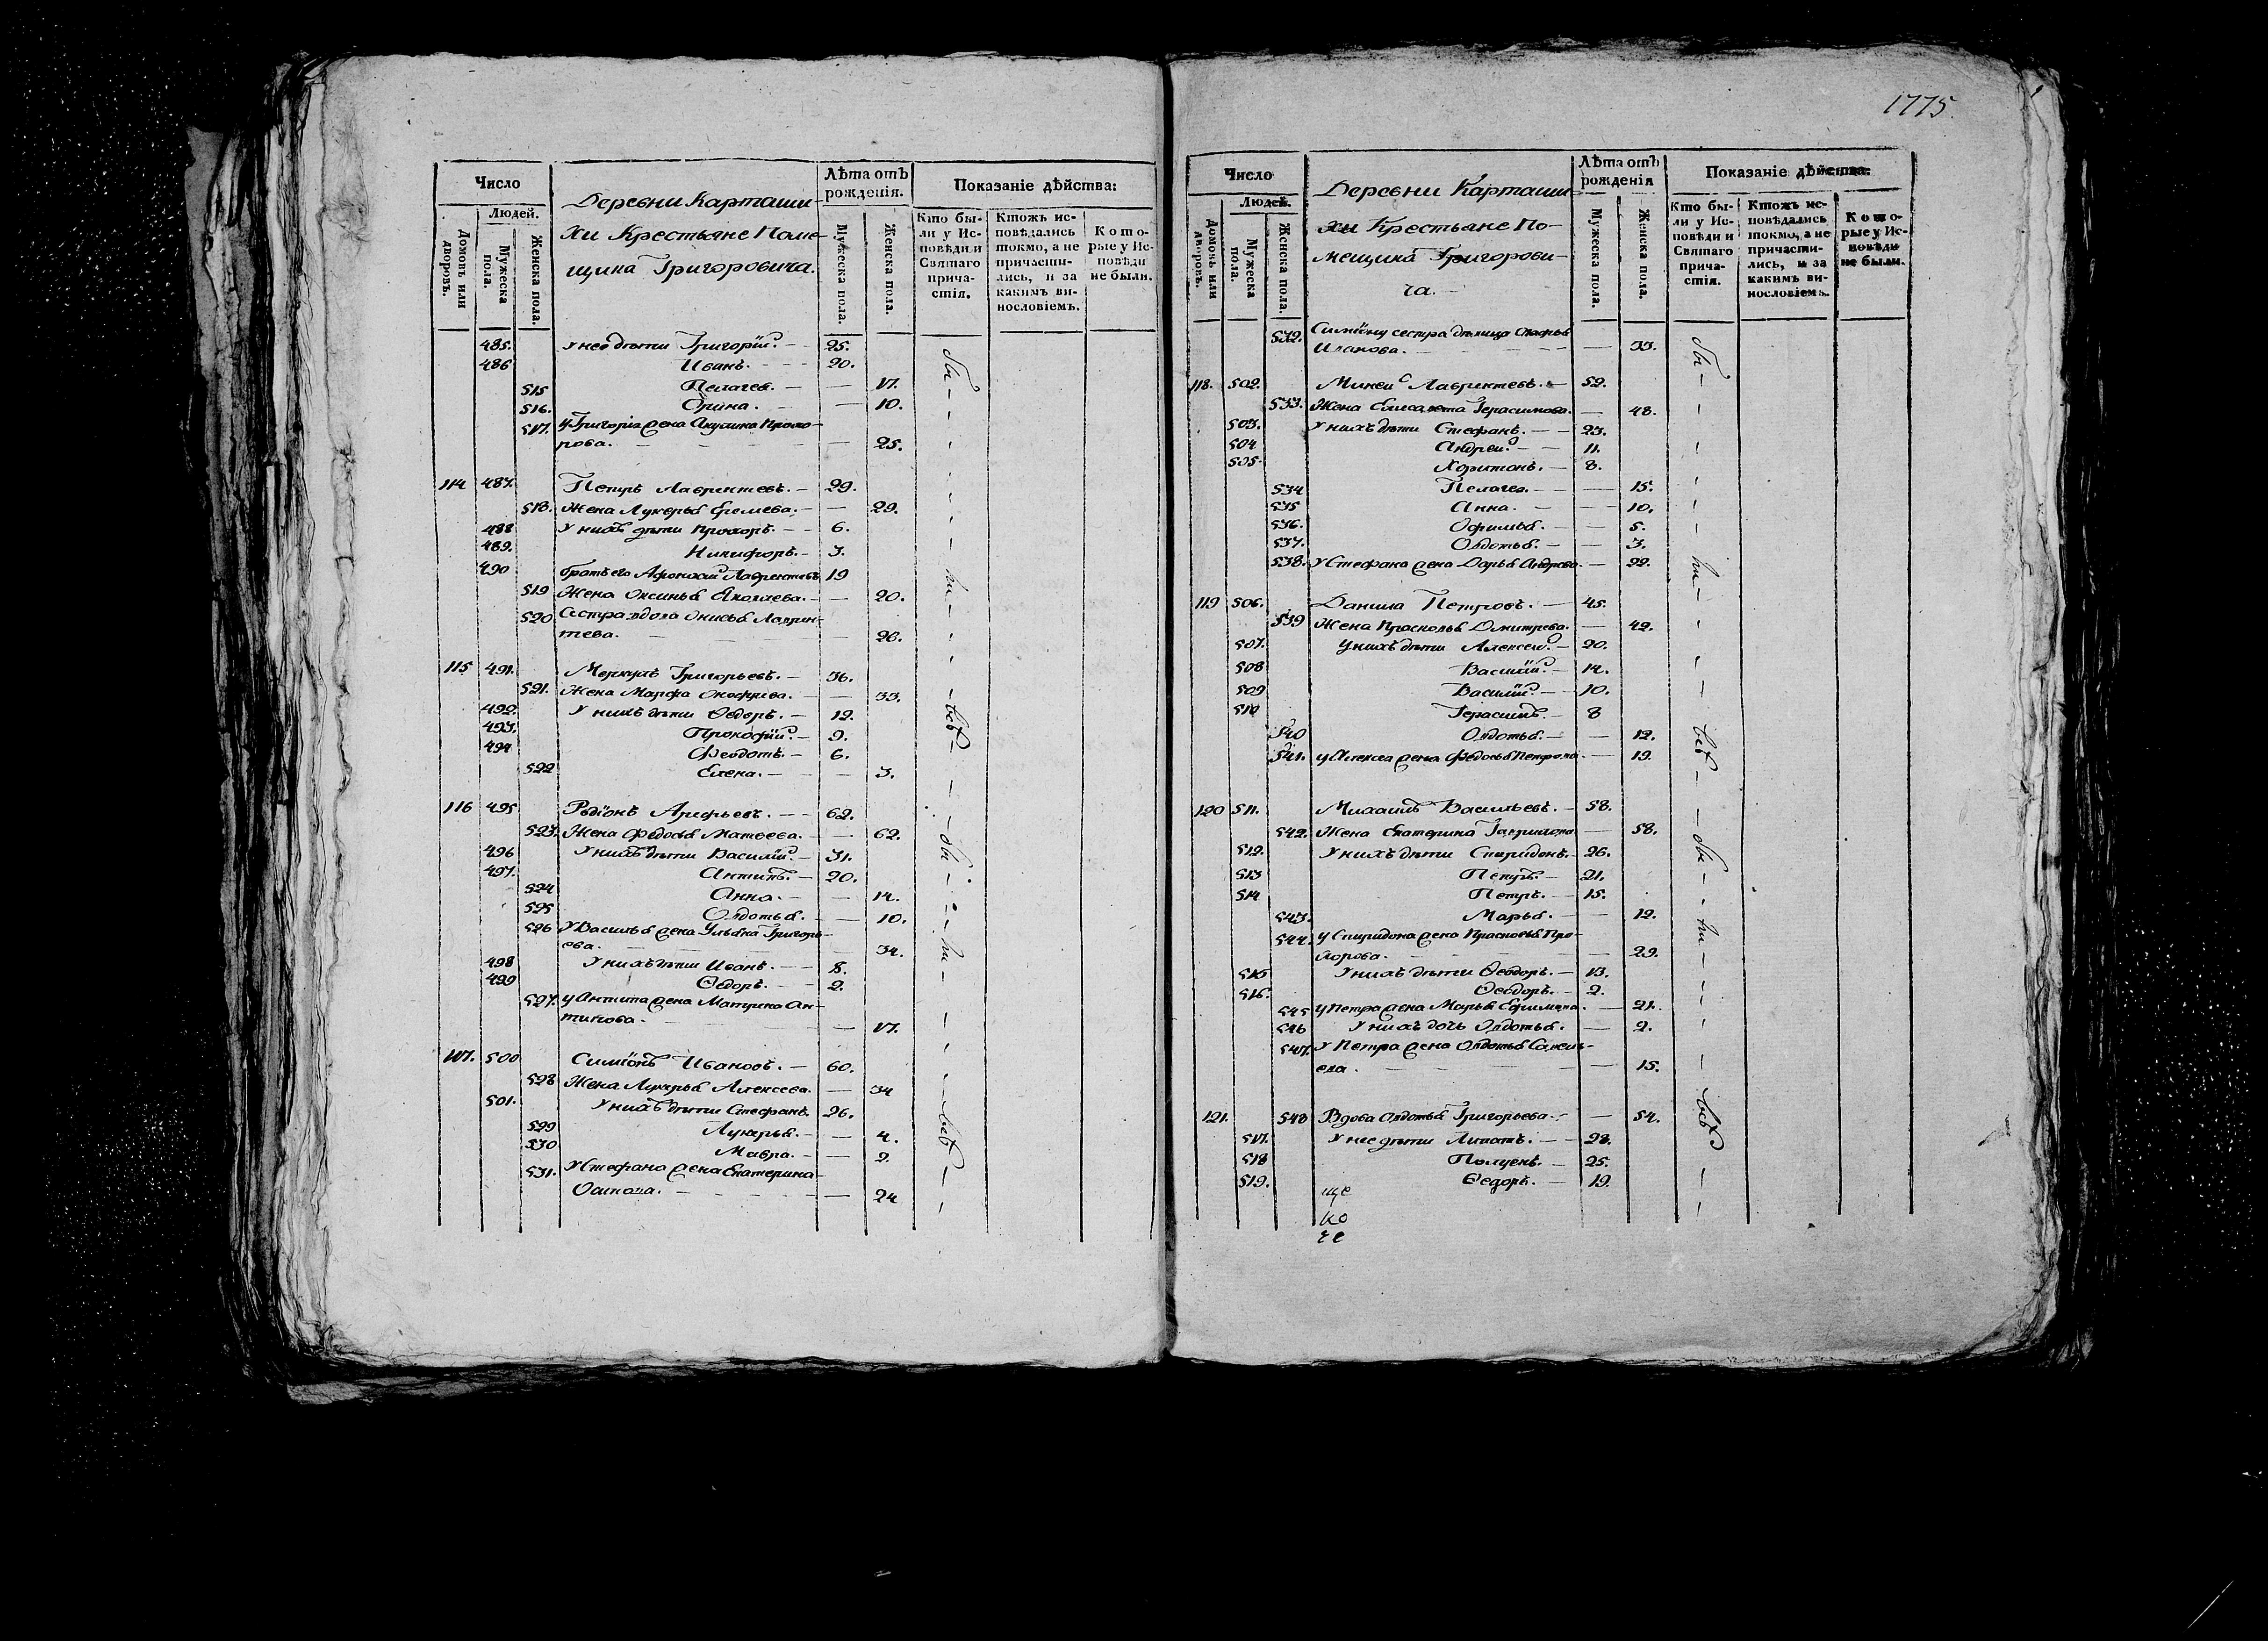 1775.
Число
Лѣта отъ
рожденія.
Показаніе дѣйства:
Людей.
Домовъ или
дворовъ.
Мужеска
пола.
Женска пола.
Деревни Карташи-
хи Крестьяне Поме-
щика Григоровича.
Мужеска пола.
Женска пола.
Кто бы-
ли у Ис-
повѣди и
Святаго
прича-
стія.
Ктожъ ис-
повѣдались
токмо, а не
причасти-
лись, и за
какимъ ви-
нословіемъ.
Кото-
рые у Ис-
повѣди
не были.
485. у нее дѣти Григорій. 25.
486 Иванъ. 20.
515 Пелагея. 17.
516. Орина. 10.
517. у Григорія жена Акулина
25.
114 487. Петръ Лаврентьевъ. 29.
518. Жена Лукерья 29.
488 У нихъ дѣти Прохоръ. 6.
489. Никифоръ. 3.
490 братъ его Лаврентьевъ 19
519 Жена Оксинья Яковлева. 20.
520 Сестра вдова Онисья Лаврен-
тева. 26.
115 491. Меркулъ Григорьевъ. 36.
521. Жена Марфа 33.
492. У нихъ дѣти Ѳедоръ. 12.
493. Прокофій. 9.
494 Федотъ. 6.
522 Елена. 3.
116 495 Родіонъ Арефьевъ. 62.
523. Жена Федосья Матвеева. 62.
496 У нихъ дѣти Василій. 31.
497. Антипъ. 20.
524 Анна. 14.
525 Овдотья. 10.
526 У Василья жена Ульяна Григорь-
ева. 34.
498 У нихъ дѣти Иванъ. 8.
499 Ѳедоръ. 2.
527. у Антипа жена Матрена Ан-
типова. 17.
117. 500 Симіонъ Ивановъ. 60.
528 Жена Лукерья Алексеева. 34
501. У нихъ дѣти Стефанъ. 26.
529 Лукерья. 4.
530 Мавра. 2.
531. У Стефана жена Екатерина
Осипова. 24
бы
ли
всѣ
бы
ли
всѣ
Число
Лѣта отъ
рожденія
Показаніе дѣйства:
Людей.
Домовъ или
дворовъ.
Мужеска
пола.
Женска пола.
Деревни Карташи-
хи Крестьяне По-
мещика Григорови-
ча.
Мужеска пола.
Женска пола.
Кто бы-
ли у Ис-
повѣди и
Святаго
прича-
стія.
Ктожъ ис-
повѣдались
токмо, а не
причасти-
лись, и за
какимъ ви-
нословіемъ.
Кото-
рые у Ис-
повѣди
не были.
532. Симіону сестра дѣвица
Иванова. 33.
118. 502. Лаврентевъ. 52.
533. Жена Елисавета Герасимова. 48.
503. У нихъ дѣти Стефанъ. 23.
504 Андрей. 11.
505. Харитонъ. 8.
534 Пелагея. 15.
535 Анна. 10.
536. Офимья. 5.
537. Овдотья. 3.
538. У Стефана жена Дарья Андреева. 22.
119 506. Данила Петровъ. 45.
539 Жена Прасковья Дмитрева. 42.
507. У нихъ дѣти Алексей. 20.
508 Василій. 14.
509 Василій. 10.
510 Герасимъ. 8
540 Овдотья. 12.
541. у Алексея жена Федосья Петрова. 19.
120 511. Михаилъ Васильевъ. 58.
542. Жена Екатерина Гаврилова 58.
512. У нихъ дѣти Спиридонъ. 26.
513 Петръ. 21.
514 Петръ. 15.
543. Марья. 12.
544. У Спиридона жена Прасковья Про-
хорова. 29.
515 У нихъ дѣти Ѳеодоръ. 13.
516. Ѳеодоръ. 2.
545 у Петра жена Марья Ефимова. 21.
546 У нихъ дочь Овдотья. 2.
547. У Петра жена Овдотья Савель-
ева. 15.
121. 548 Вдова Овдотья Григорьева. 54.
517. У нее дѣти Липатъ. 28.
518 25.
519. Ѳедоръ. 19.
бы
ли
всѣ
бы
ли
всѣ
ще
ко
ге